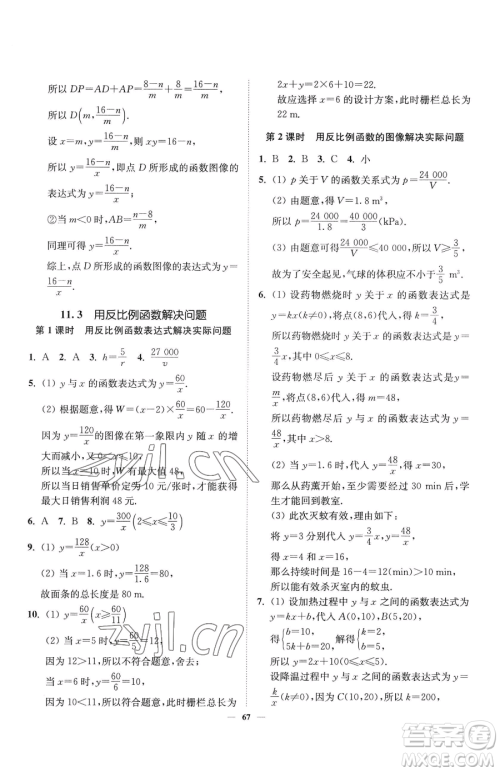 所以 DP=AD+AP=(8-n)/m+8/m=(16-n)/m.
所以 D(m, (16-n)/m).
设 x=m, y=(16-n)/m, 则 xy=16-n.
所以 y=(16-n)/x, 即点 D 所形成的函数图像的
表达式为 y=(16-n)/x.
②当 m<0 时, AB=(n-8)/m,
同理可得 y=(16-n)/x.
综上, 点 D 所形成的函数图像的表达式为 y=
(16-n)/x.
11.3 用反比例函数解决问题
第 1 课时 用反比例函数表达式解决实际问题
1. A 2. A 3. h=5/r 4. 27 000/v
5. (1) y 与 x 的函数表达式为 y=60/x.
(2) 根据题意, 得 W=(x-2)×60/x=60-120/x.
因为 y=120/x 的图像在第一象限内 y 随 x 的增
大而减小, 又 0<x≤10,
所以当 x=10 时, W 有最大值 48,
所以当日销售单价定为 10 元/张时, 才能获得
最大日销售利润 48 元.
6. A 7. B 8. y=300/x (2≤x≤10/3)
9. (1) y=128/x (x>0)
(2) 当 x=1.6 时, y=128/1.6=80,
故面条的总长度是 80 m.
10. (1) y=60/x (x≥60/11)
(2) 当 x=5 时, y=60/5=12,
因为 12>11, 所以不符合题意, 舍去;
当 x=6 时, y=60/6=10,
因为 10<11, 所以符合题意, 此时栅栏总长为
2x+y=2×6+10=22.
故应选择 x=6 的设计方案, 此时栅栏总长为
22 m.
第 2 课时 用反比例函数的图像解决实际问题
1. B 2. B 3. C 4. 小
5. (1) p 关于 V 的函数关系式为 p=24 000/V.
(2) 由题意, 得 V=1.8 m³,
所以 p=24 000/1.8=40 000/3 (kPa).
(3) 由题意, 得 24 000/V≤40 000, 所以 V≥3/5.
所以为了安全起见, 气球的体积应不小于 3/5 m³.
6. (1) 设药物燃烧时 y 关于 x 的函数表达式为
y=kx(k≠0), 将点(8,6)代入, 得 k=3/4, 所以 y=
3/4x, 其中 0≤x≤8;
设药物燃尽后 y 关于 x 的函数表达式为 y=
m/x, 将点(8,6)代入, 得 m=48, 所以 y=
48/x, 其中 x>8.
(2) 当 y=1.6 时, 代入 y=48/x, 得 x=30,
那么从药薰开始, 至少需要经过 30 min 后, 学
生才能回到教室.
(3) 此次灭蚊有效, 理由如下:
将 y=3 分别代入 y=3/4x, y=48/x, 得 x=4
和 x=16.
那么持续时间是 16-4=12(min)>10 min,
所以能有效杀灭室内的蚊虫.
7. (1) 设加热过程中 y 与 x 之间的函数表达式为
y=kx+b(k≠0), 代入 A(0,10), B(5,20),
得{b=10, 5k+b=20, 解得{k=2, b=10.
所以 y=2x+10(0≤x≤5).
设降温过程中 y 与 x 之间的函数表达式为 y=
k/x (k≠0), 因为 C(10,20), 所以 k=200,
67
zyjl.cn